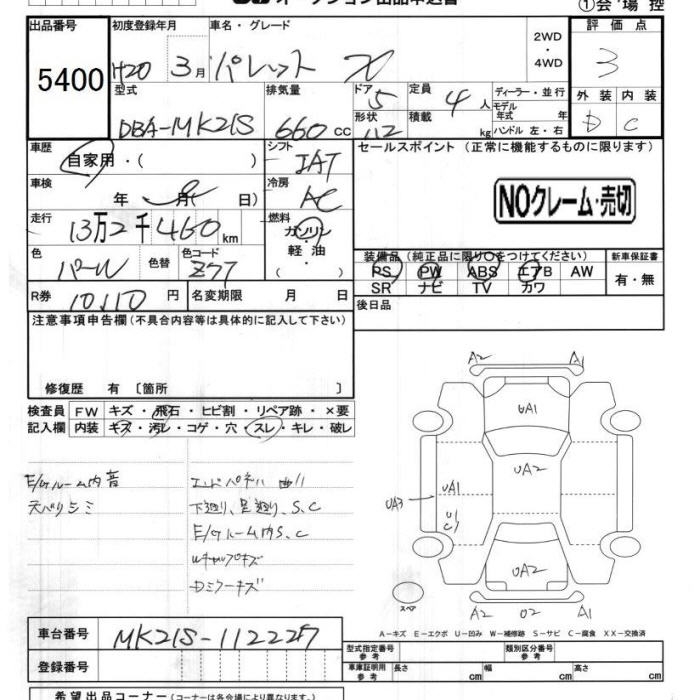 オークション出品申込書
①会場控
出品番号 初度登録年月 車名・グレード 2WD・4WD 評価点
5400 H20 3月 パレット X 3
型式 排気量 ドア 5 定員 4人 ディーラー・並行
モデル年式 年 外装 内装
DBA-MK21S 660cc 形状 積載 kg ハンドル 左・右 D C
車歴 シフト セールスポイント（正常に機能するものに限ります）
自家用・（ ） IAT
車検 冷房
年 月( 日) AC NOクレーム・売切
走行 燃料
13万2千460km ガソリン・軽油
色 色替 色コード 装備品（純正品に限り○をつけてください） 新車保証書
パール Z7T PS PW ABS エアB AW 有・無
SR ナビ TV カワ
R券 10,110円 名変期限 月 日 後日品
注意事項申告欄（不具合内容等は具体的に記入して下さい）
修復歴 有 〔箇所
検査員 FW キズ・飛石・ヒビ割・リペア跡・×要
記入欄 内装 キズ・汚レ・コゲ・穴・スレ・キレ・破レ
E/Gルーム内音 エンドパネル曲り
天バリシミ 下廻り、足廻り、S、C
E/Gルーム内S、C
A2 A1
UA1
UA2
UA3 UA1
UA2
スペア A2 A1
A-キズ E-エクボ U-凹み W-補修跡 S-サビ C-腐食 XX-交換済
車台番号 MK21S-112227
登録番号
型式指定番号 参考 類別区分番号 参考
車庫証明用 参考 長さ cm 幅 cm 高さ cm
希望出品コーナー（コーナーは各会場により異なります。）